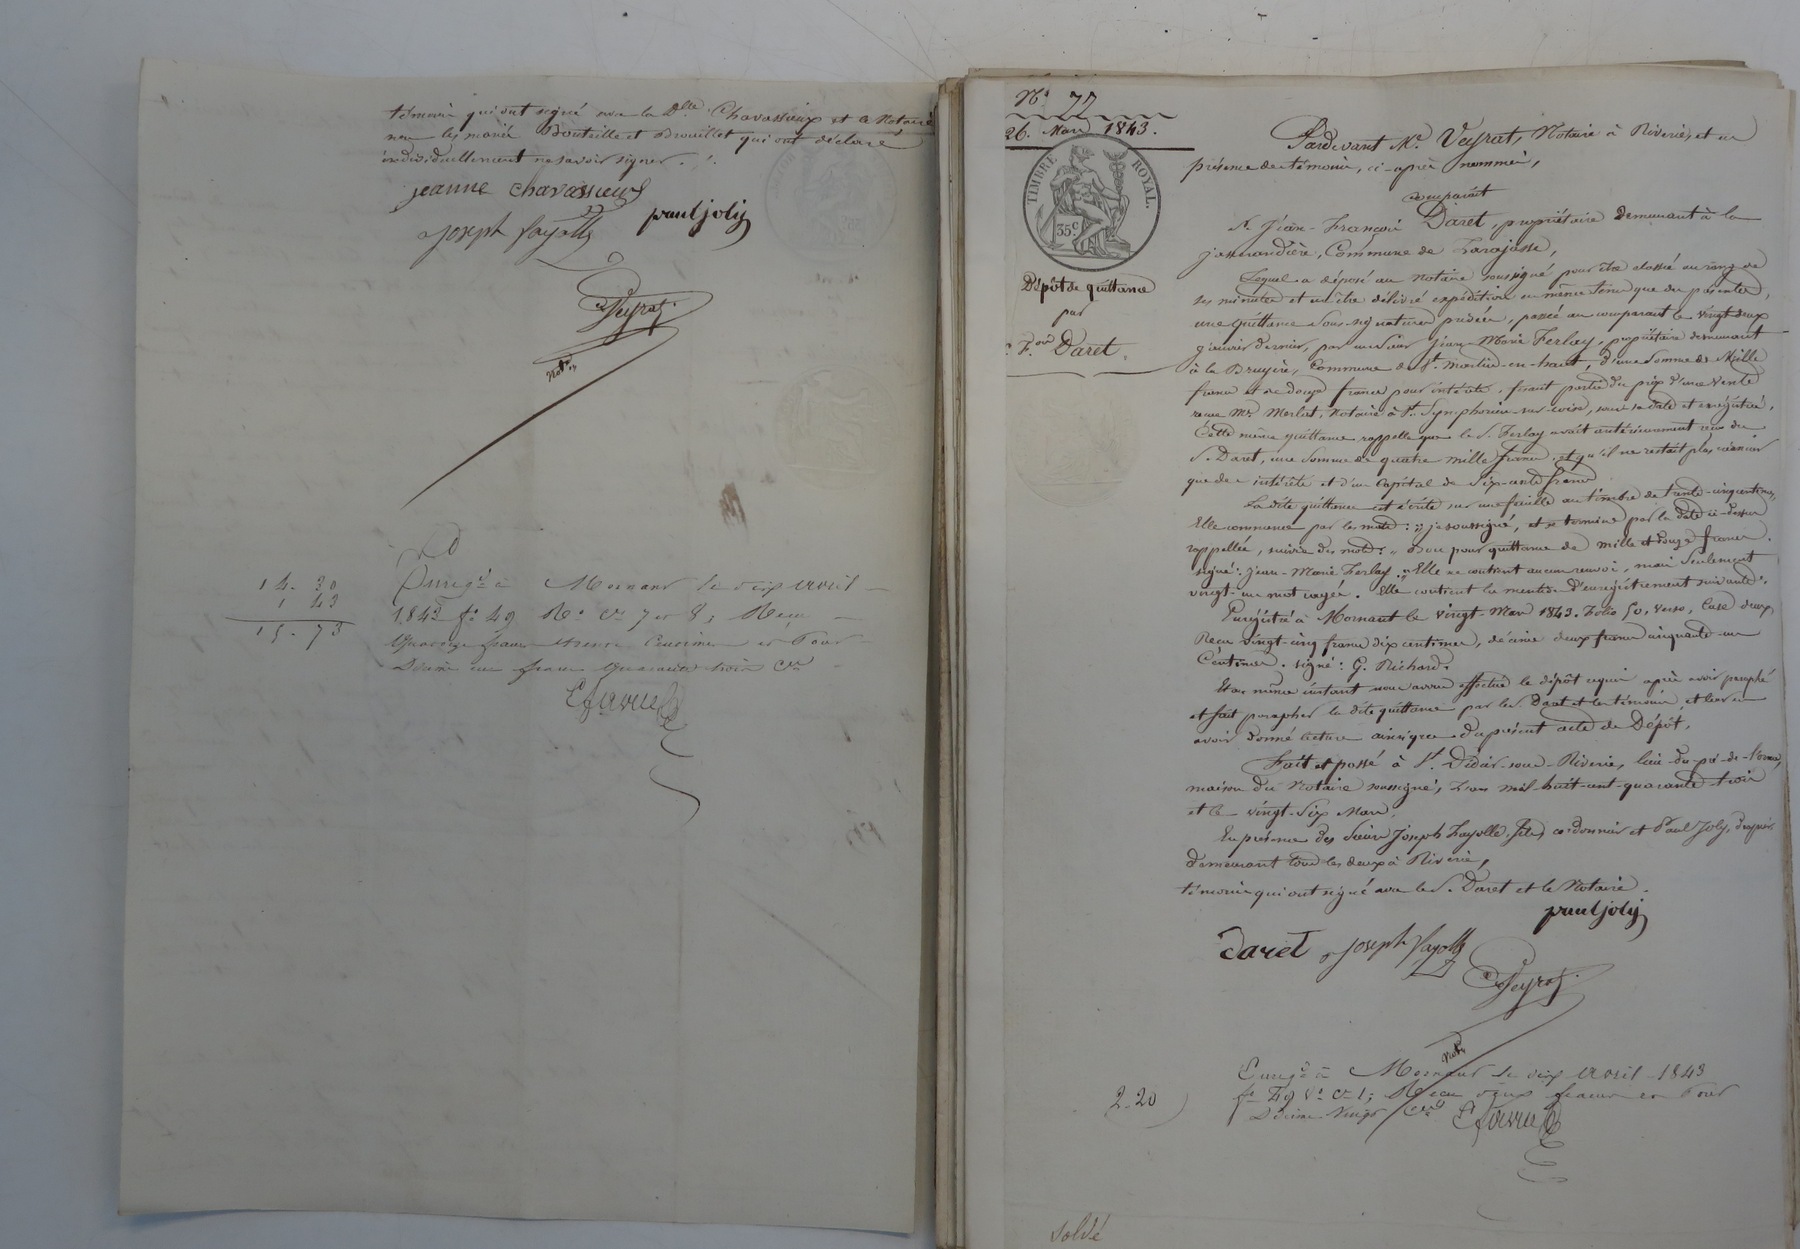 témoins qui ont signé avec la Dlle Chavassieux et le Notaire
non les mariés Bouteille et Brouillet qui ont déclaré
individuellement ne savoir signer.
jeanne chavassieux
joseph fayolle
paul joly
Veyrat
Notre
14. 30
1 43
15. 73
Enregé à Mornant le dix avril
1843 fo 49 Ro Cs 7 et 8; Reçu
quatorze francs trente centimes et pour
Décime un franc quarante trois Cs
No 77
26. Mars 1843.
TIMBRE ROYAL.
35c
Dépôt de quittance
par
Fois Daret.
Pardevant Me Veyrat, Notaire à Riverie, et en
présence des témoins, ci-après nommés,
comparaît
S. Jean-François Daret, propriétaire demeurant à la
jasserandière, Commune de Larajasse,
Lequel a déposé au Notaire soussigné pour être classée au rang de
ses minutes et en être délivré expédition en même tems que des présentes,
une quittance sous-signatures privées, passée au comparant le vingt deux
janvier dernier, par un Sieur Jean-Marie Ferlay, propriétaire demeurant
à la Bruyère, Commune de St. Martin-en-haut, d'une somme de Mille
francs et de douze francs pour intérêts, faisant partie du prix d'une vente
reçue Me Merlat, Notaire à St. Symphorien-sur-coise, sous sa date et enregistrée.
Cette même quittance rappelle que le S. Ferlay avait antérieurement reçu du
S. Daret, une somme de quatre mille francs et qu'il ne restait plus créancier
que des intérêts et d'un capital de six-cents francs
La dite quittance est écrite sur une feuille au timbre de trente-cinq centimes,
Elle commence par les mots: „ je soussigné, et se termine par la date ci-dessus
rappellée, suivie des mots: „ Bon pour quittance de mille et douze francs.
signé: Jean-Marie Ferlay. „ Elle ne contient aucun renvoi, mais seulement
vingt-un mots rayés. Elle contient la mention d'enregistrement suivante.
Enrégistré à Mornant le vingt Mars 1843. Folio 50, verso, Case deux,
Reçu vingt-cinq francs dix centimes, décime deux francs cinquante-un
Centimes. signé: G. Richard.
Et au même instant nous avons effectué le dépôt requis après avoir paraphé
et fait parapher la dite quittance par le S. Daret et les témoins, et leur en
avoir donné lecture ainsi que du présent acte de Dépôt.
Fait et passé à St. Didier-sous-Riverie, lieu du pré-de-l'orme,
maison du Notaire soussigné, L'an mil-huit-cent-quarante-trois
et le vingt-six Mars.
En présence des Sieurs Joseph Fayolle fils, cordonnier et Paul Joly,
demeurant tous les deux à Riverie,
témoins qui ont signé avec le S. Daret et le Notaire.
paul joly
daret joseph fayolle
Veyrat
Notre
Enregé à Mornant le dix avril 1843
fo 49 Vo Ce 1; Reçu deux francs et pour
Décime vingt Cs
2-20
soldé